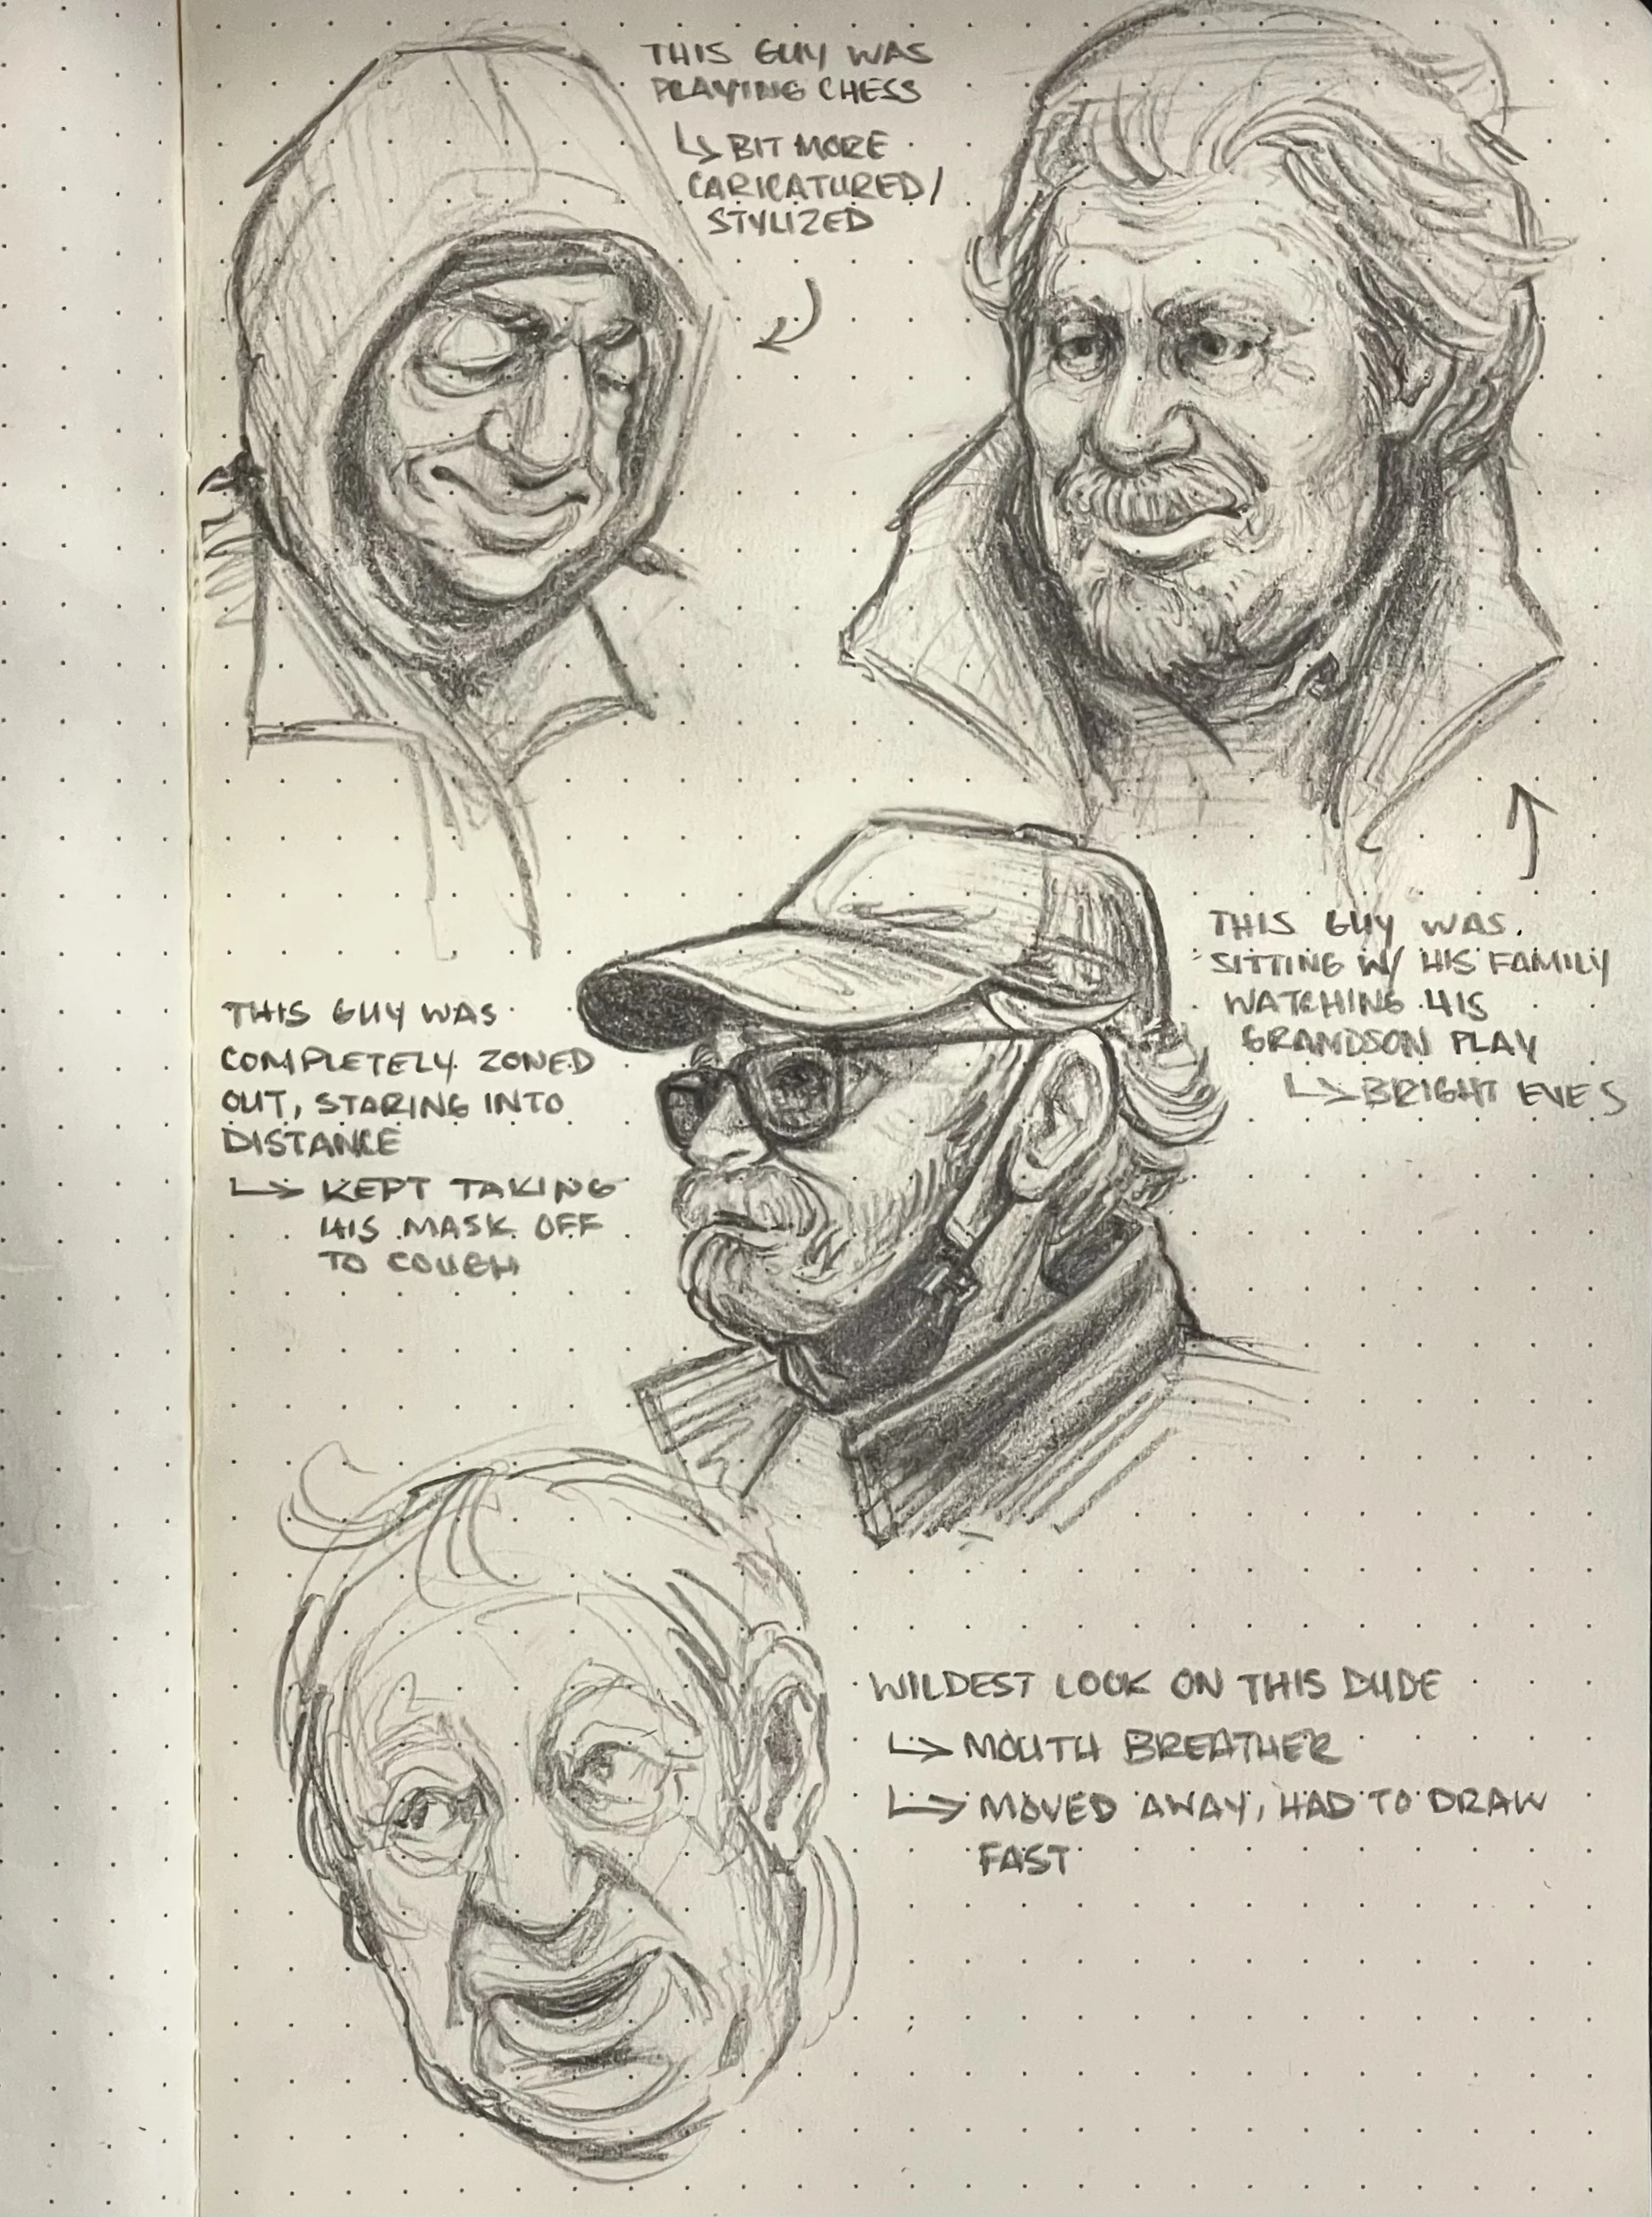 THIS GUY WAS
PLAYING CHESS
↳ BIT MORE
CARICATURED/
STYLIZED
THIS GUY WAS
SITTING W/ HIS FAMILY
WATCHING HIS
GRANDSON PLAY
↳ BRIGHT EYES
THIS GUY WAS
COMPLETELY ZONED
OUT, STARING INTO
DISTANCE
↳ KEPT TAKING
HIS MASK OFF
TO COUGH
WILDEST LOOK ON THIS DUDE
↳ MOUTH BREATHER
↳ MOVED AWAY, HAD TO DRAW
FAST